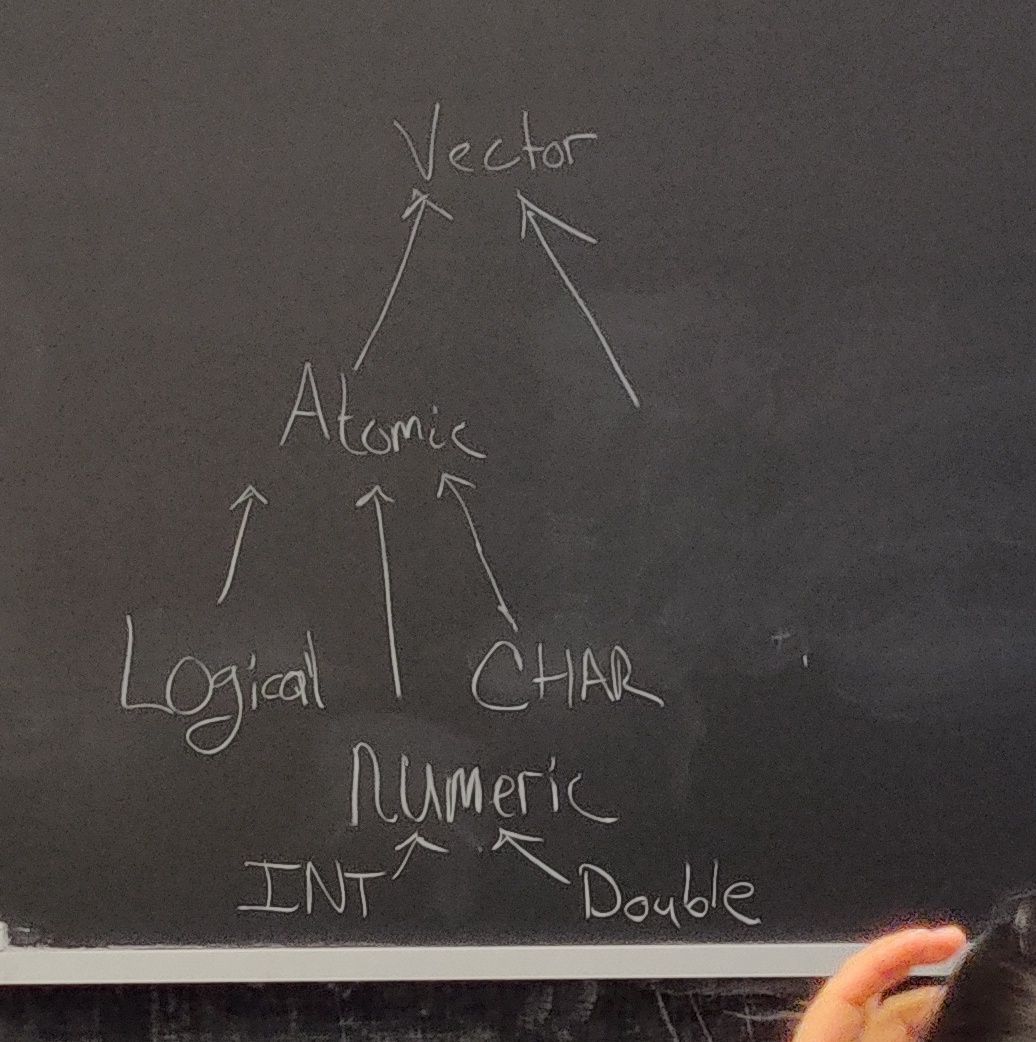 Vector
Atomic
Logical CHAR
Numeric
INT Double